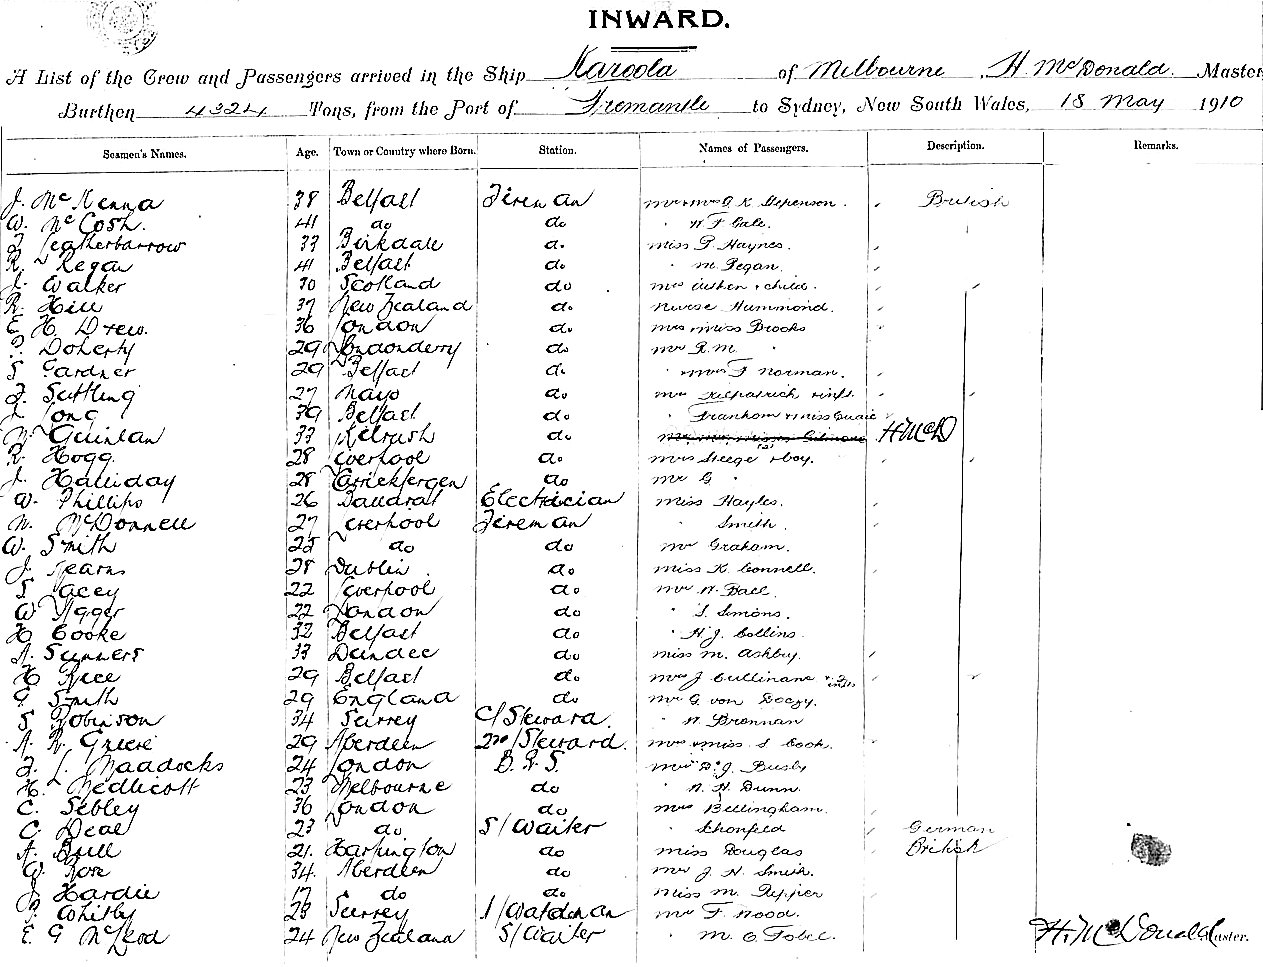 INWARD.
A List of the Crew and Passengers arrived in the Ship Karoola of Melbourne, H McDonald. Master
Burthen 4324 Tons, from the Port of Fremantle to Sydney, New South Wales, 18 May 1910
Seamen's Names. Age. Town or Country where Born. Station. Names of Passengers. Description. Remarks.
J. McKenna 38 Belfast Fireman British
W. McCosh. 41 do do W F Gale.
Leatherbarrow 33 Birkdale do Miss Haynes.
R. Regan 41 Belfast do M. Pegan.
J. Walker 30 Scotland do Mrs & child.
R. Hill 37 New Zealand do Nurse Hummond.
E. H. Drew. 36 London do Mrs & Miss Brooks
P. Doherty 29 Londonderry do Mr R. M. "
S Gardner 29 Belfast do Norman.
Suttling 27 Mayo do Mrs Kilpatrick & inft.
J. Long 39 Belfast do & Miss Quaie
M. Quinlan 33 Kilrush do H McD
R. Hogg. 28 Liverpool do Mrs Steege & boy.
J. Halliday 28 do Mr G "
W. Phillips 26 Electrician Miss Hayles.
McDonnell 27 Liverpool Fireman " Smith.
W. Smith 25 do do Mr Graham.
J. Hearns 28 Dublin do Miss K. Connell.
S Lacey 22 Liverpool do Mr W. Ball
W 22 London do " S. Simons.
H Cooke 32 Belfast do " H. J. Collins.
A. Sunners 33 Dundee do Miss M. Ashby.
H Rice 29 Belfast do Mrs J Cullinane & 2 infts
G Smith 29 England do Mr G. von
S Robinson 34 Surrey C/Steward. " Brennan
A. W. Greere 29 Aberdeen 2nd/Steward. Mrs & Miss S Cook.
L. Maddocks 24 London B. R. S. Mr D. J. Busby
H. Medlicott 23 Melbourne do " N. H. Dunn.
C. Sebley 36 London do Mrs Bellingham.
C. Deal 23 do. S/Waiter " Schonfeld German
A. Bull 21. Harpington do Miss Douglas British
W. Rose 34. Aberdeen do Mr J. N. Smith.
J Hardie 17 do do Miss M. Pepper
P. Whitby 28 Surrey Mr F. Wood.
E. G McLeod 24 New Zealand S/Waiter " M. C. Fobel.
H. McDonald Master.